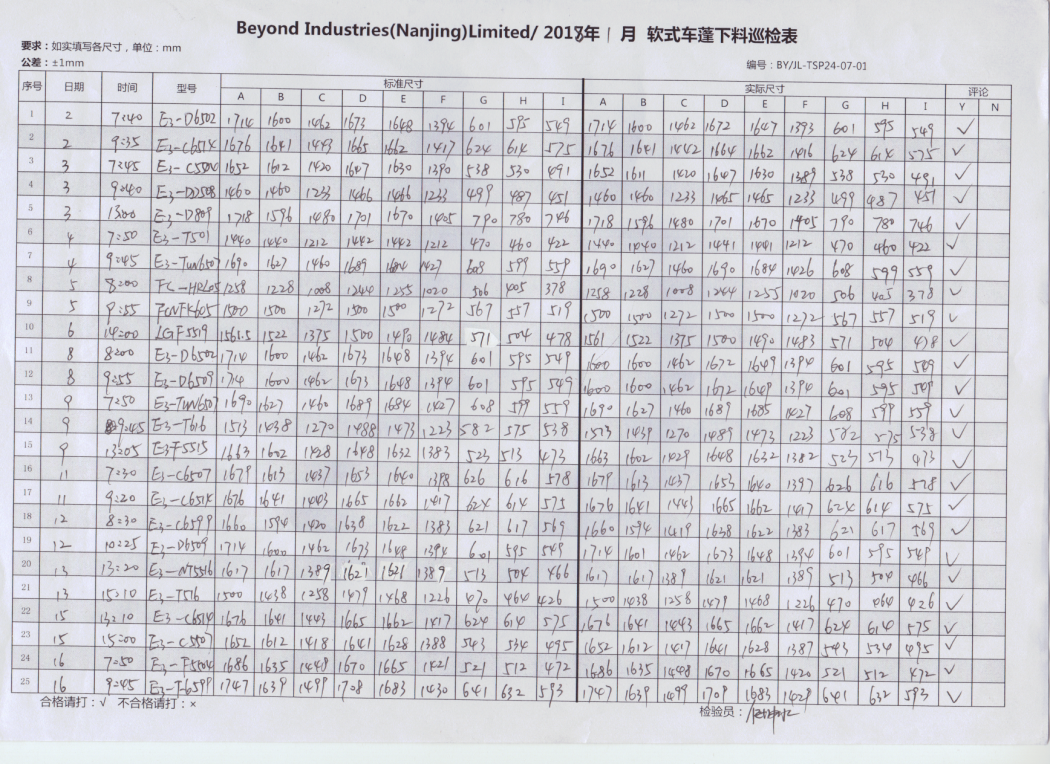 Beyond Industries(Nanjing)Limited/ 2018年 1 月 软式车蓬下料巡检表
要求：如实填写各尺寸，单位：mm
公差：±1mm
编号：BY/JL-TSP24-07-01
序号 日期 时间 型号 标准尺寸 实际尺寸 评论
A B C D E F G H I A B C D E F G H I Y N
1 2 7:40 E3-D6502 1714 1600 1462 1673 1648 1394 601 595 549 1714 1600 1462 1672 1647 1393 601 595 549 √
2 2 9:35 E3-C6514 1676 1641 1443 1665 1662 1417 624 614 575 1676 1641 1442 1664 1662 1416 624 614 575 √
3 3 7:45 E3-C5504 1652 1612 1420 1647 1630 1390 538 530 491 1652 1611 1420 1647 1630 1389 538 530 491 √
4 3 9:40 E3-D2508 1460 1460 1233 1466 1466 1233 499 487 451 1460 1460 1233 1465 1465 1233 499 487 451 √
5 3 13:00 E3-D809 1718 1596 1480 1701 1670 1405 790 780 746 1718 1596 1480 1701 1670 1405 790 780 746 √
6 4 7:50 E3-T501 1440 1440 1212 1442 1442 1212 470 460 422 1440 1440 1212 1441 1441 1212 470 460 422 √
7 4 9:45 E3-TUN6507 1690 1627 1460 1689 1684 1427 608 599 559 1690 1627 1460 1690 1684 1426 608 599 559 √
8 5 8:00 FC-HR605 1258 1228 1008 1244 1255 1020 506 405 378 1258 1228 1008 1244 1255 1020 506 405 378 √
9 5 9:55 1500 1500 1272 1500 1500 1272 567 557 519 1500 1500 1272 1500 1500 1272 567 557 519 √
10 6 14:00 LGF5519 1561.5 1522 1375 1500 1490 1484 571 504 478 1561 1522 1375 1500 1490 1483 571 504 478 √
11 8 8:00 E3-D6502 1714 1600 1462 1673 1648 1394 601 595 549 1600 1600 1462 1672 1649 1394 601 595 549 √
12 8 9:55 E3-D6509 1714 1600 1462 1673 1648 1394 601 595 549 1600 1600 1462 1672 1649 1394 601 595 549 √
13 9 7:50 E3-TUN6507 1690 1627 1460 1689 1684 1427 608 599 559 1690 1627 1460 1689 1685 1427 608 599 559 √
14 9 9:45 E3-T616 1513 1438 1270 1488 1473 1223 582 575 538 1513 1439 1270 1489 1473 1223 582 575 538 √
15 9 13:05 E3F5515 1663 1602 1428 1648 1632 1383 523 513 473 1663 1602 1429 1648 1632 1382 523 513 473 √
16 11 7:30 E3-C6507 1679 1613 1437 1653 1640 1398 626 616 578 1679 1613 1437 1653 1640 1397 626 616 578 √
17 11 9:20 E3-C6514 1676 1641 1443 1665 1662 1417 624 614 575 1676 1641 1443 1665 1662 1417 624 614 575 √
18 12 8:30 E3-C6599 1660 1594 1420 1638 1622 1383 621 617 569 1660 1594 1419 1638 1622 1383 621 617 569 √
19 12 10:25 E3-D6509 1714 1600 1462 1673 1648 1394 601 595 549 1714 1601 1462 1673 1648 1394 601 595 549 √
20 13 13:20 E3-NT5516 1617 1617 1389 1621 1621 1389 513 504 466 1617 1617 1389 1621 1621 1389 513 504 466 √
21 13 15:10 E3-T516 1500 1438 1258 1479 1468 1226 470 464 426 1500 1438 1258 1479 1468 1226 470 464 426 √
22 15 13:10 E3-C6514 1676 1641 1443 1665 1662 1417 624 614 575 1676 1641 1443 1665 1662 1417 624 614 575 √
23 15 15:00 E3-C5507 1652 1612 1418 1641 1628 1388 543 534 495 1652 1612 1417 1641 1628 1387 543 534 495 √
24 16 7:50 E3-F5504 1686 1635 1449 1670 1665 1421 521 512 472 1686 1635 1448 1670 1665 1420 521 512 472 √
25 16 9:45 E3-T6599 1747 1639 1499 1708 1683 1430 641 632 593 1747 1639 1499 1709 1683 1429 641 632 593 √
合格请打：√ 不合格请打：×
检验员：